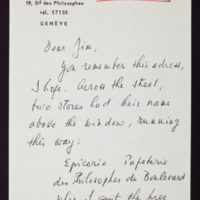 19, Bd des Philosophes
tél. 57155
GENÈVE
Dear Jim,
You remember this adress,
I hope. Across the street,
two stores had their name
above the window, running
this way:
Epicerie Papeterie
des Philosophes du Boulevard
the free